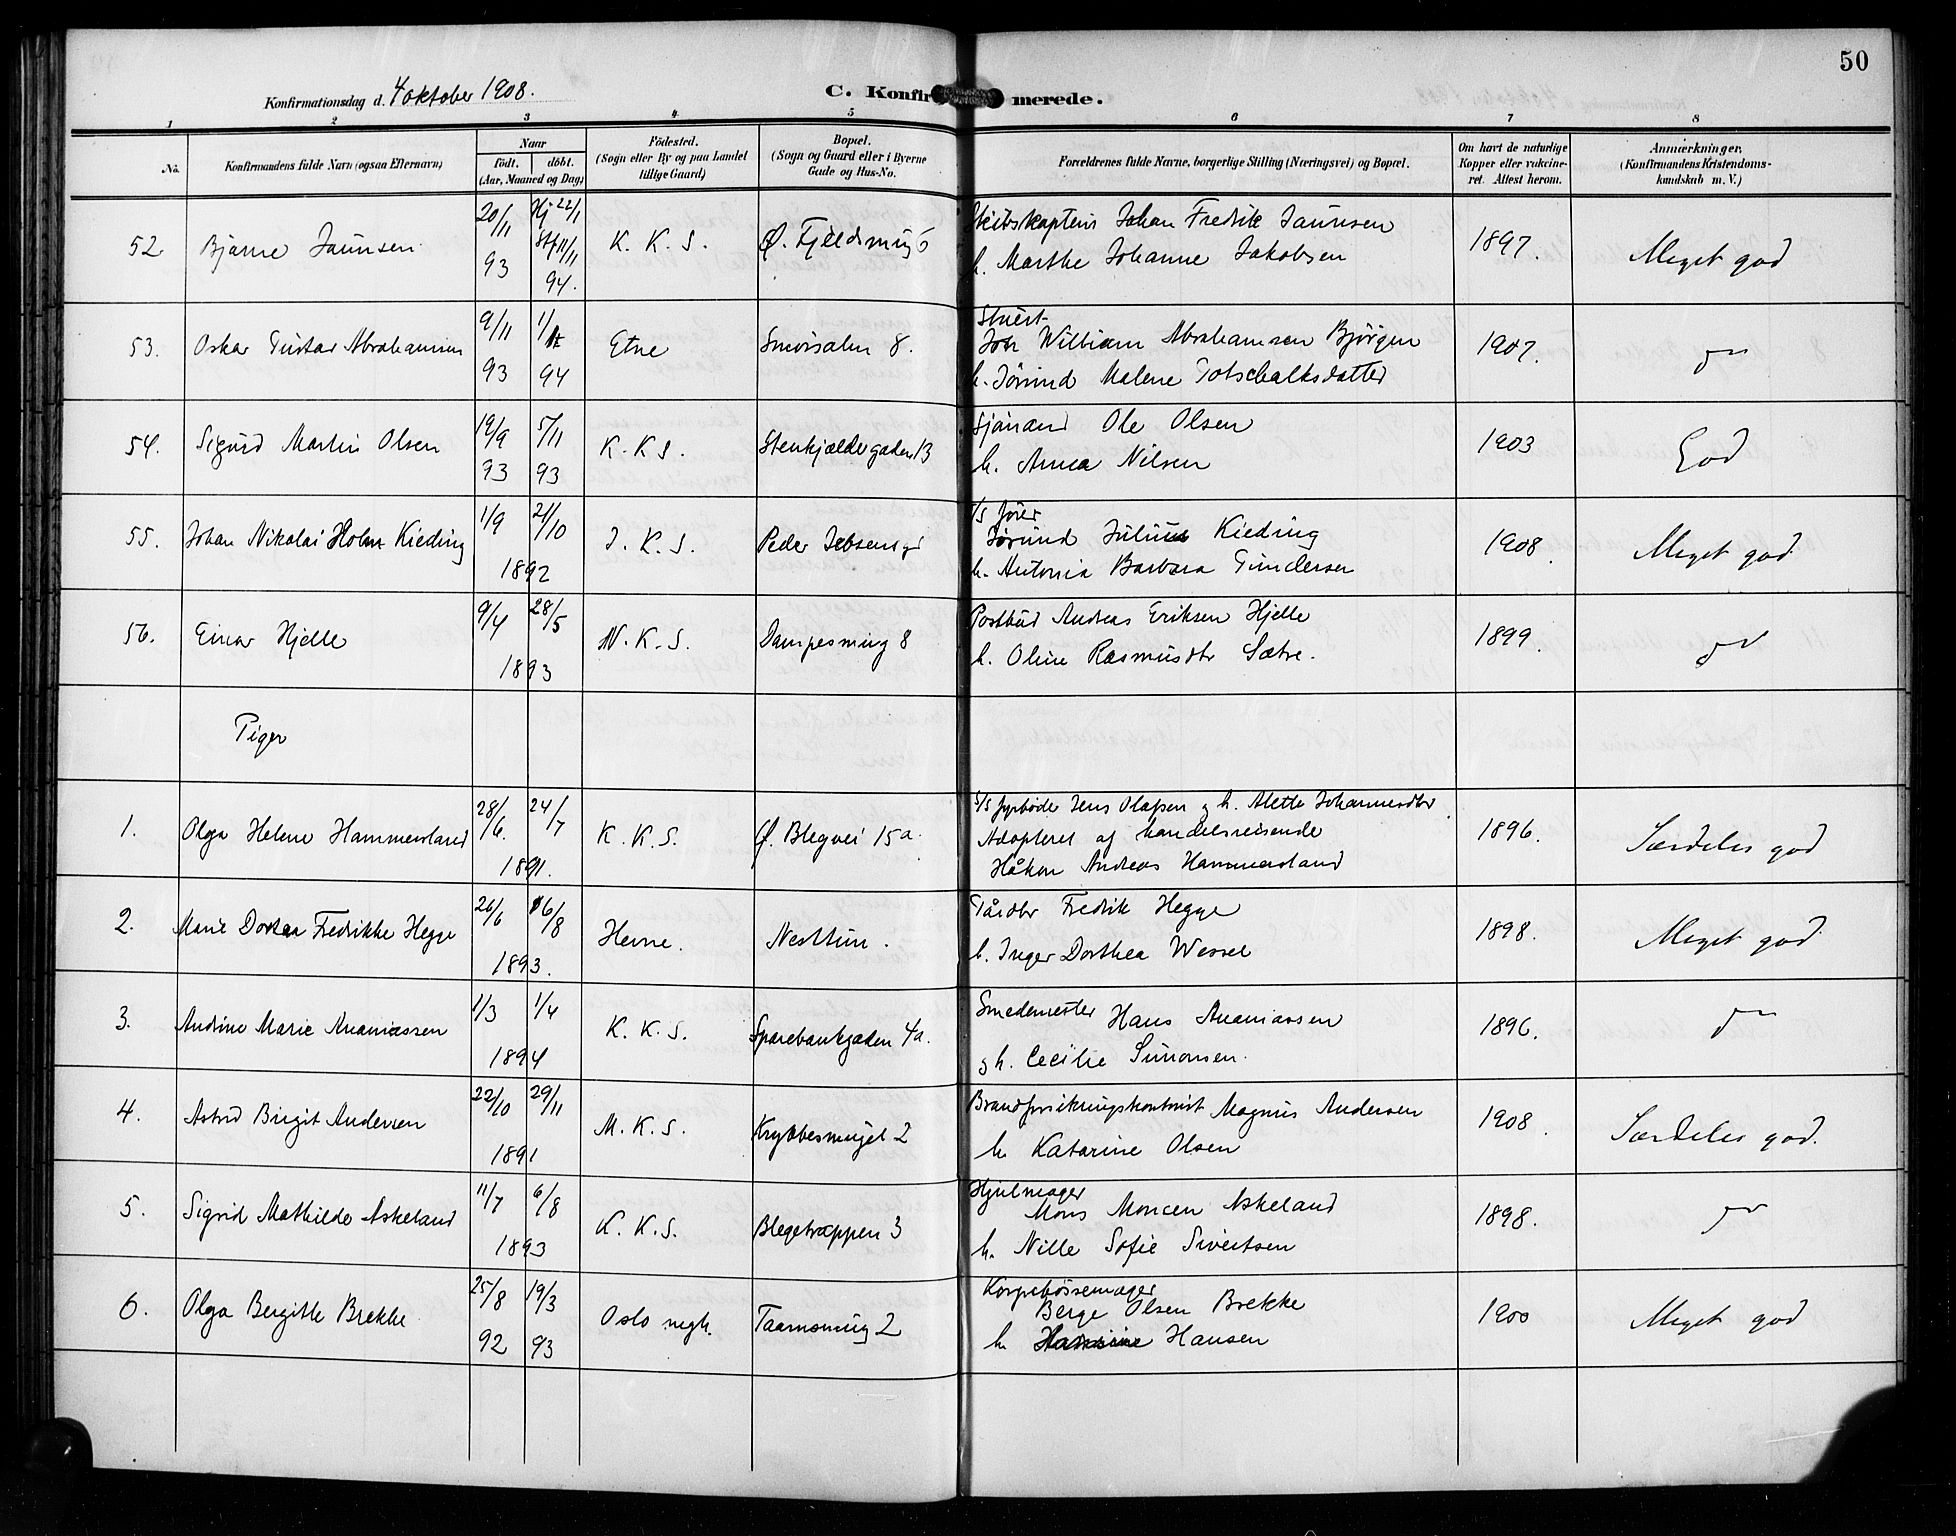 50
Konfirmationsdag d. 4 oktober 1908.
C. Konfirmerede.
1 2 3 4 5 6 7 8
No.
Konfirmandens fulde Navn (ogsaa Efternavn)
Naar
født. døbt.
(Aar, Maaned og Dag)
Fødested.
(Sogn eller By og paa Landet
tillige Gaard)
Bopæl.
(Sogn og Gaard eller i Byerne
Gade og Hus-No.
Forældrenes fulde Navne, borgerlige Stilling (Næringsvei) og Bopæl.
Om havt de naturlige
Kopper eller vakcine-
ret. Attest herom.
Anmærkninger.
(Konfirmandens Kristendoms-
kundskab m. V.)
52. Bjarne Jaunsen 20/11 93 Hj 22/1 Stf 11/11 94. K. K. S. Ø. Fjeldsmug 6
Skibskaptein Johan Fredrik Jaunsen
h. Marthe Johanne Jakobsen
1897. Meget god
53. Oskar Gustav Abrahamsen 9/11 93 94 Etne Smørsalen 8.
Stuert
William Abrahamsen Bjørgen
h. Jørind Malene Gotschalksdatter
1907. do
54. Sigurd Martin Olsen 19/9 93 5/11 93 K. K. S. Stenkjældergaden 13
Sjømand Ole Olsen
h. Anna Nilsen
1903 God
55. Johan Nikolai Holm Kieding 1/9 21/10 1892 J. K. S. Peder Jebsensg
Julius Kieding
h. Antonia Barbara Gundersen
1908. Meget god
56. Einar Hjelle 9/4 28/5 1893 N. K. S. Dampesmug 8
Postbud Andreas Eriksen Hjelle
h. Oline Rasmusdtr Sætre.
1899. do
Piger
1. Olga Helene Hammersland 28/6. 24/7 1891. K. K. S. Ø. Blegvei 15a.
S/S fyrbøder Jens Olafsen g h. Alette Johannesdtr.
Adopteret af handelsreisende
Håkon Andreas Hammersland
1896. Særdeles god
2. Marie Dortea Fredrikke Hegge 26/6 16/8 1893. Hevne. Nesttun.
Gårdbr Fredrik Hegge
h. Inger Dorthea Wessel
1898. Meget god
3. Andrine Marie Ananiassen 1/3 1/4 1894 K. K. S. Sparebankgaden 4a.
Smedemester Hans Ananiassen
g h. Cecilie Simonsen.
1896. do
4. Astrid Birgit Andersen 22/10 29/11 1891 M. K. S. Krybbesmuget 2
Brandforsikringskontorist Magnus Andersen
h Katarine Olsen
1908. Særdeles god.
5. Sigrid Mathilde Askeland 11/7 6/8 1893 K. K. S. Blegetrappen 3
Hjulmager
Mons Monsen Askeland
h. Nille Sofie Sivertsen
1898. do
6. Olga Bergitte Brekke 25/8 92 19/3 93 Oslo mgh. Taarnsmug 2
Korgebøssemager
Berge Olsen Brekke
h Hansine Hansen
1900 Meget god